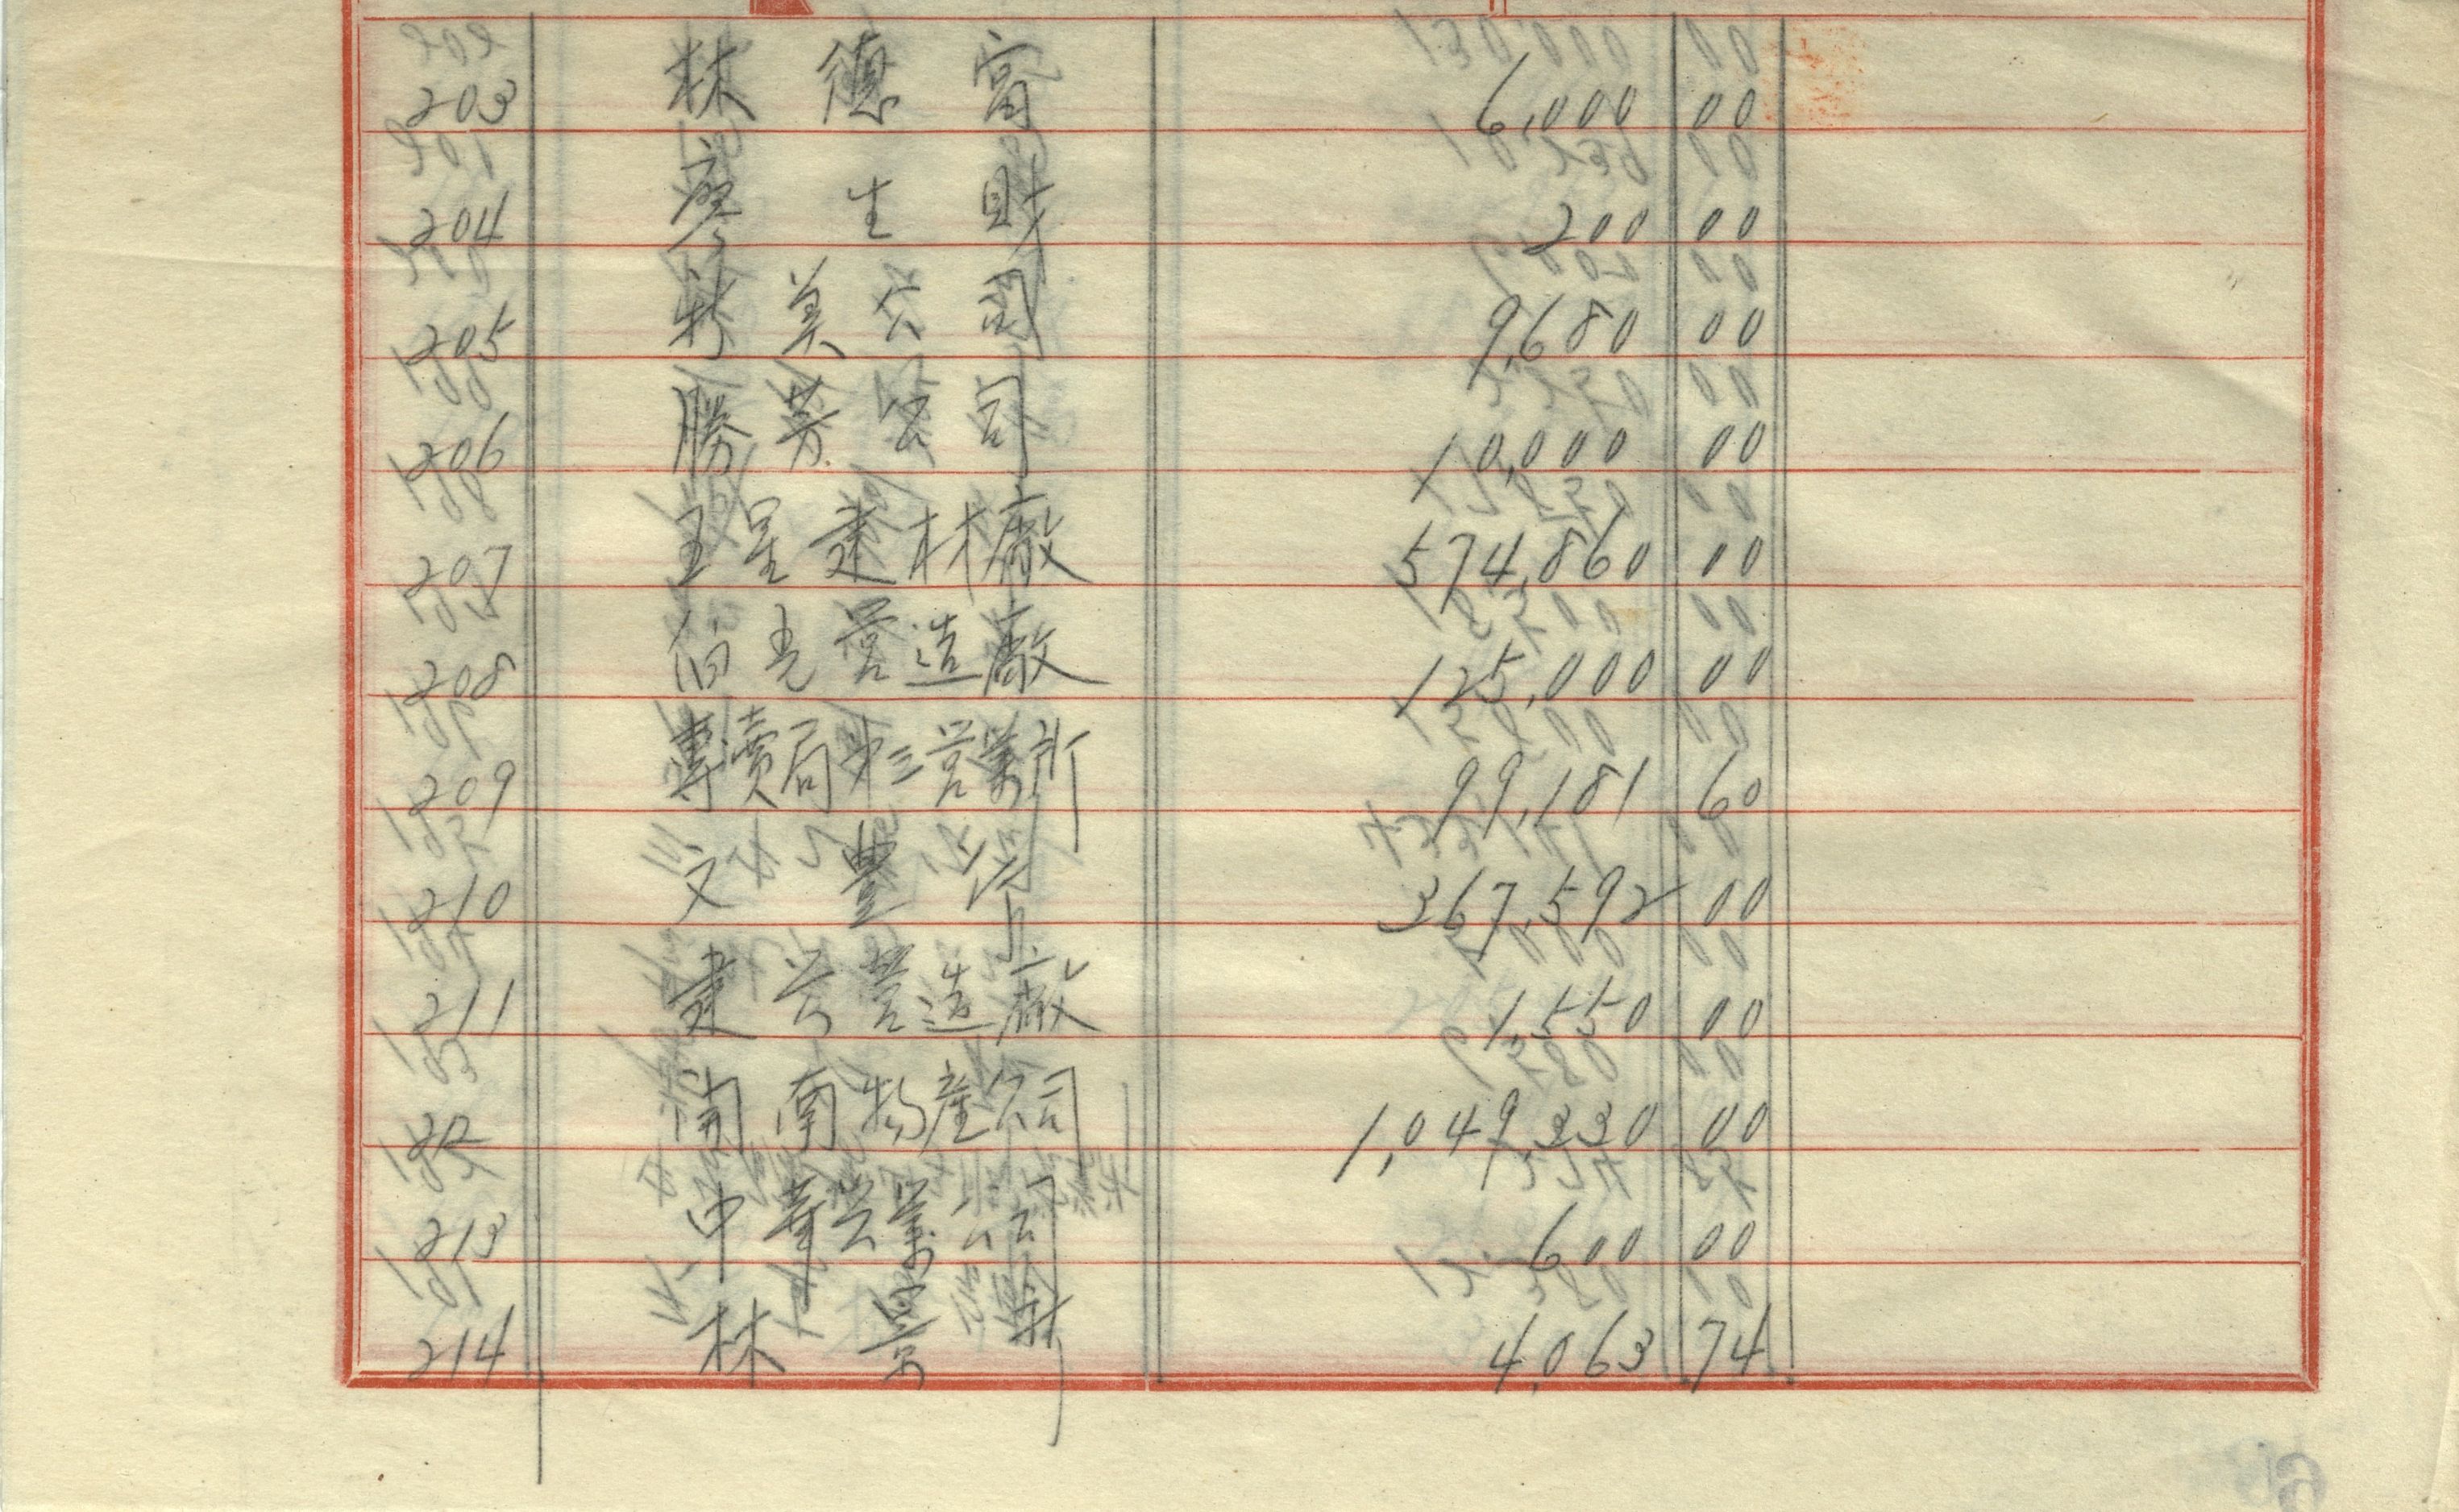 203 林德富 6,000 00
204 廖生財 200 00
205 特美公司 9,680 00
206 勝芳公司 10,000 00
207 王星建材廠 574,860 00
208 伯光營造廠 125,000 00
209 專賣局第三营業所 99,181 60
210 文豐行 367,592 00
211 建兴营造廠 1,550 00
212 闽南物產公司 1,049,330 00
213 中華兴業公司 600 00
214 林景 4,063 74